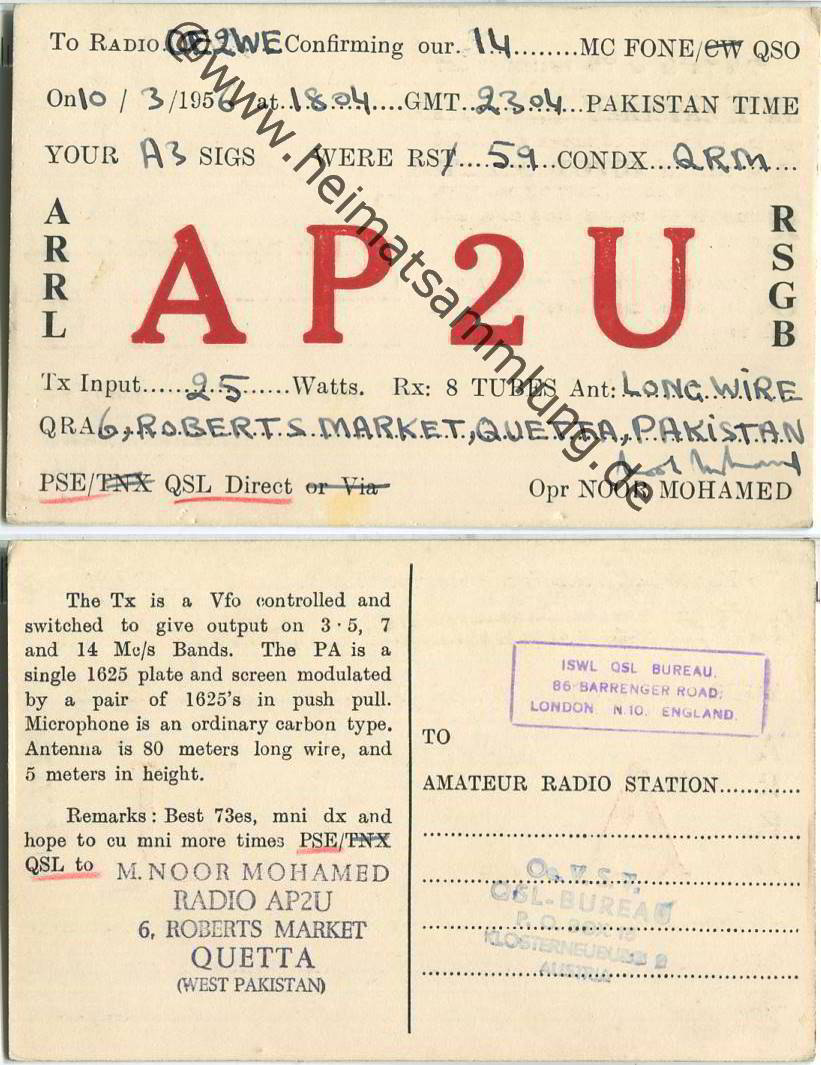 To Radio OE2WE Confirming our. 14........MC FONE/CW QSO
On 10 / 3 /1956 at..1804....GMT..2304...PAKISTAN TIME
YOUR A3 SIGS WERE RST....59...CONDX...QRM...
ARRL
AP2U
RSGB
Tx Input.....25......Watts. Rx: 8 TUBES Ant: LONG WIRE
QRA 6, ROBERTS MARKET, QUETTA, PAKISTAN
PSE/TNX QSL Direct or Via
Opr NOOR MOHAMED
@www.heimatsammlung.de
The Tx is a Vfo controlled and
switched to give output on 3·5, 7
and 14 Mc/s Bands. The PA is a
single 1625 plate and screen modulated
by a pair of 1625's in push pull.
Microphone is an ordinary carbon type.
Antenna is 80 meters long wire, and
5 meters in height.
Remarks: Best 73es, mni dx and
hope to cu mni more times PSE/TNX
QSL to
M. NOOR MOHAMED
RADIO AP2U
6, ROBERTS MARKET
QUETTA
(WEST PAKISTAN)
ISWL QSL BUREAU,
86 BARRENGER ROAD,
LONDON N.10. ENGLAND.
TO
AMATEUR RADIO STATION............
Oe. V. S. V.
QSL-BUREAU
P. O. BOX
KLOSTERNEUBURG 2
AUSTRIA